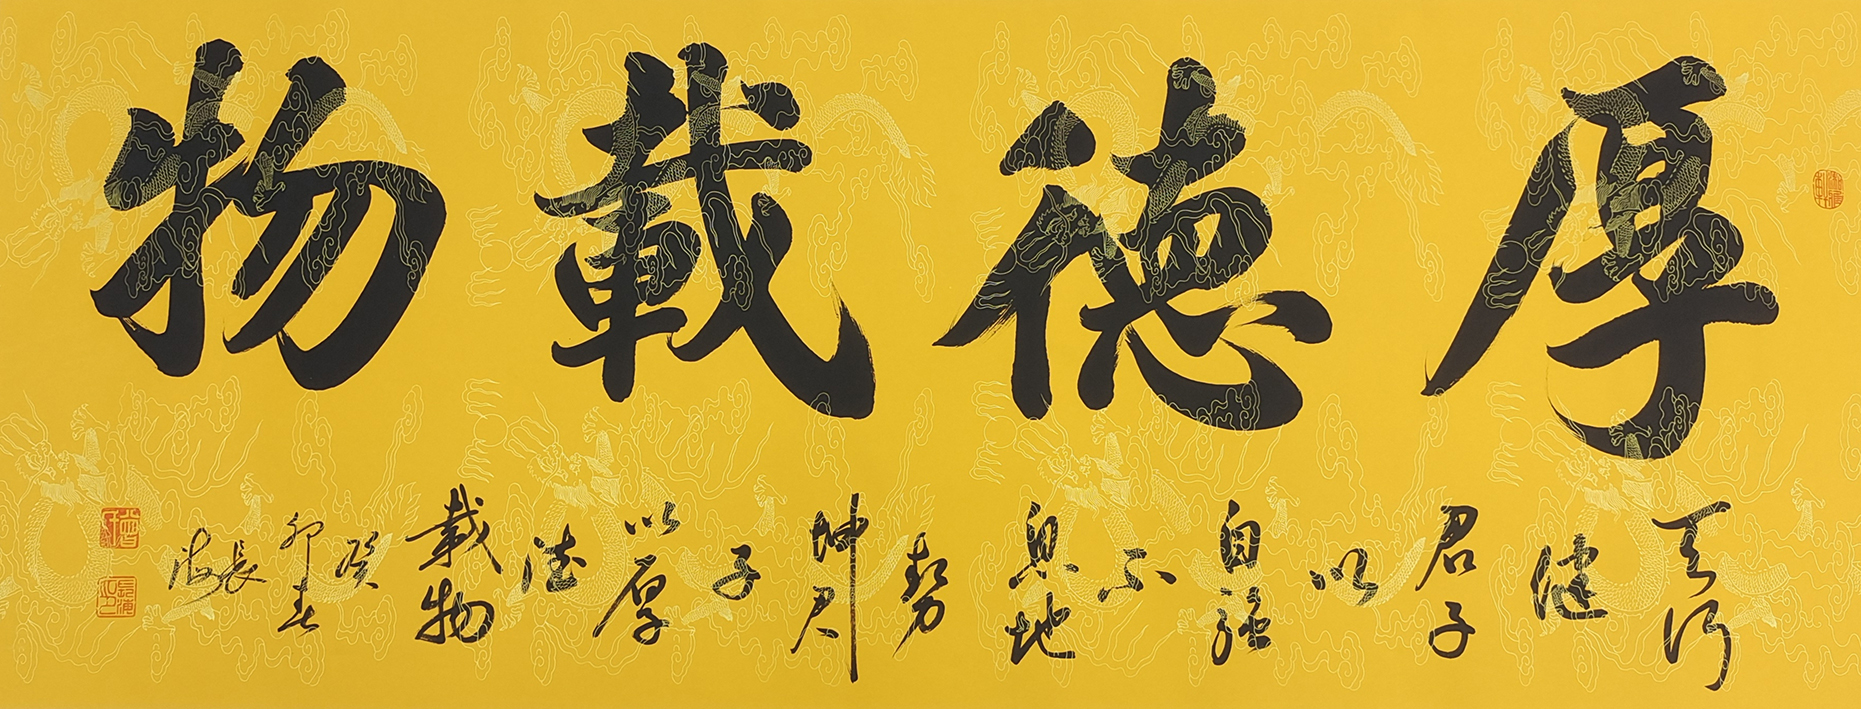 厚德載物
天行
健
君子
以
自強
不
息地
勢
坤君
子
以厚
德
載物
癸
卯春
長海